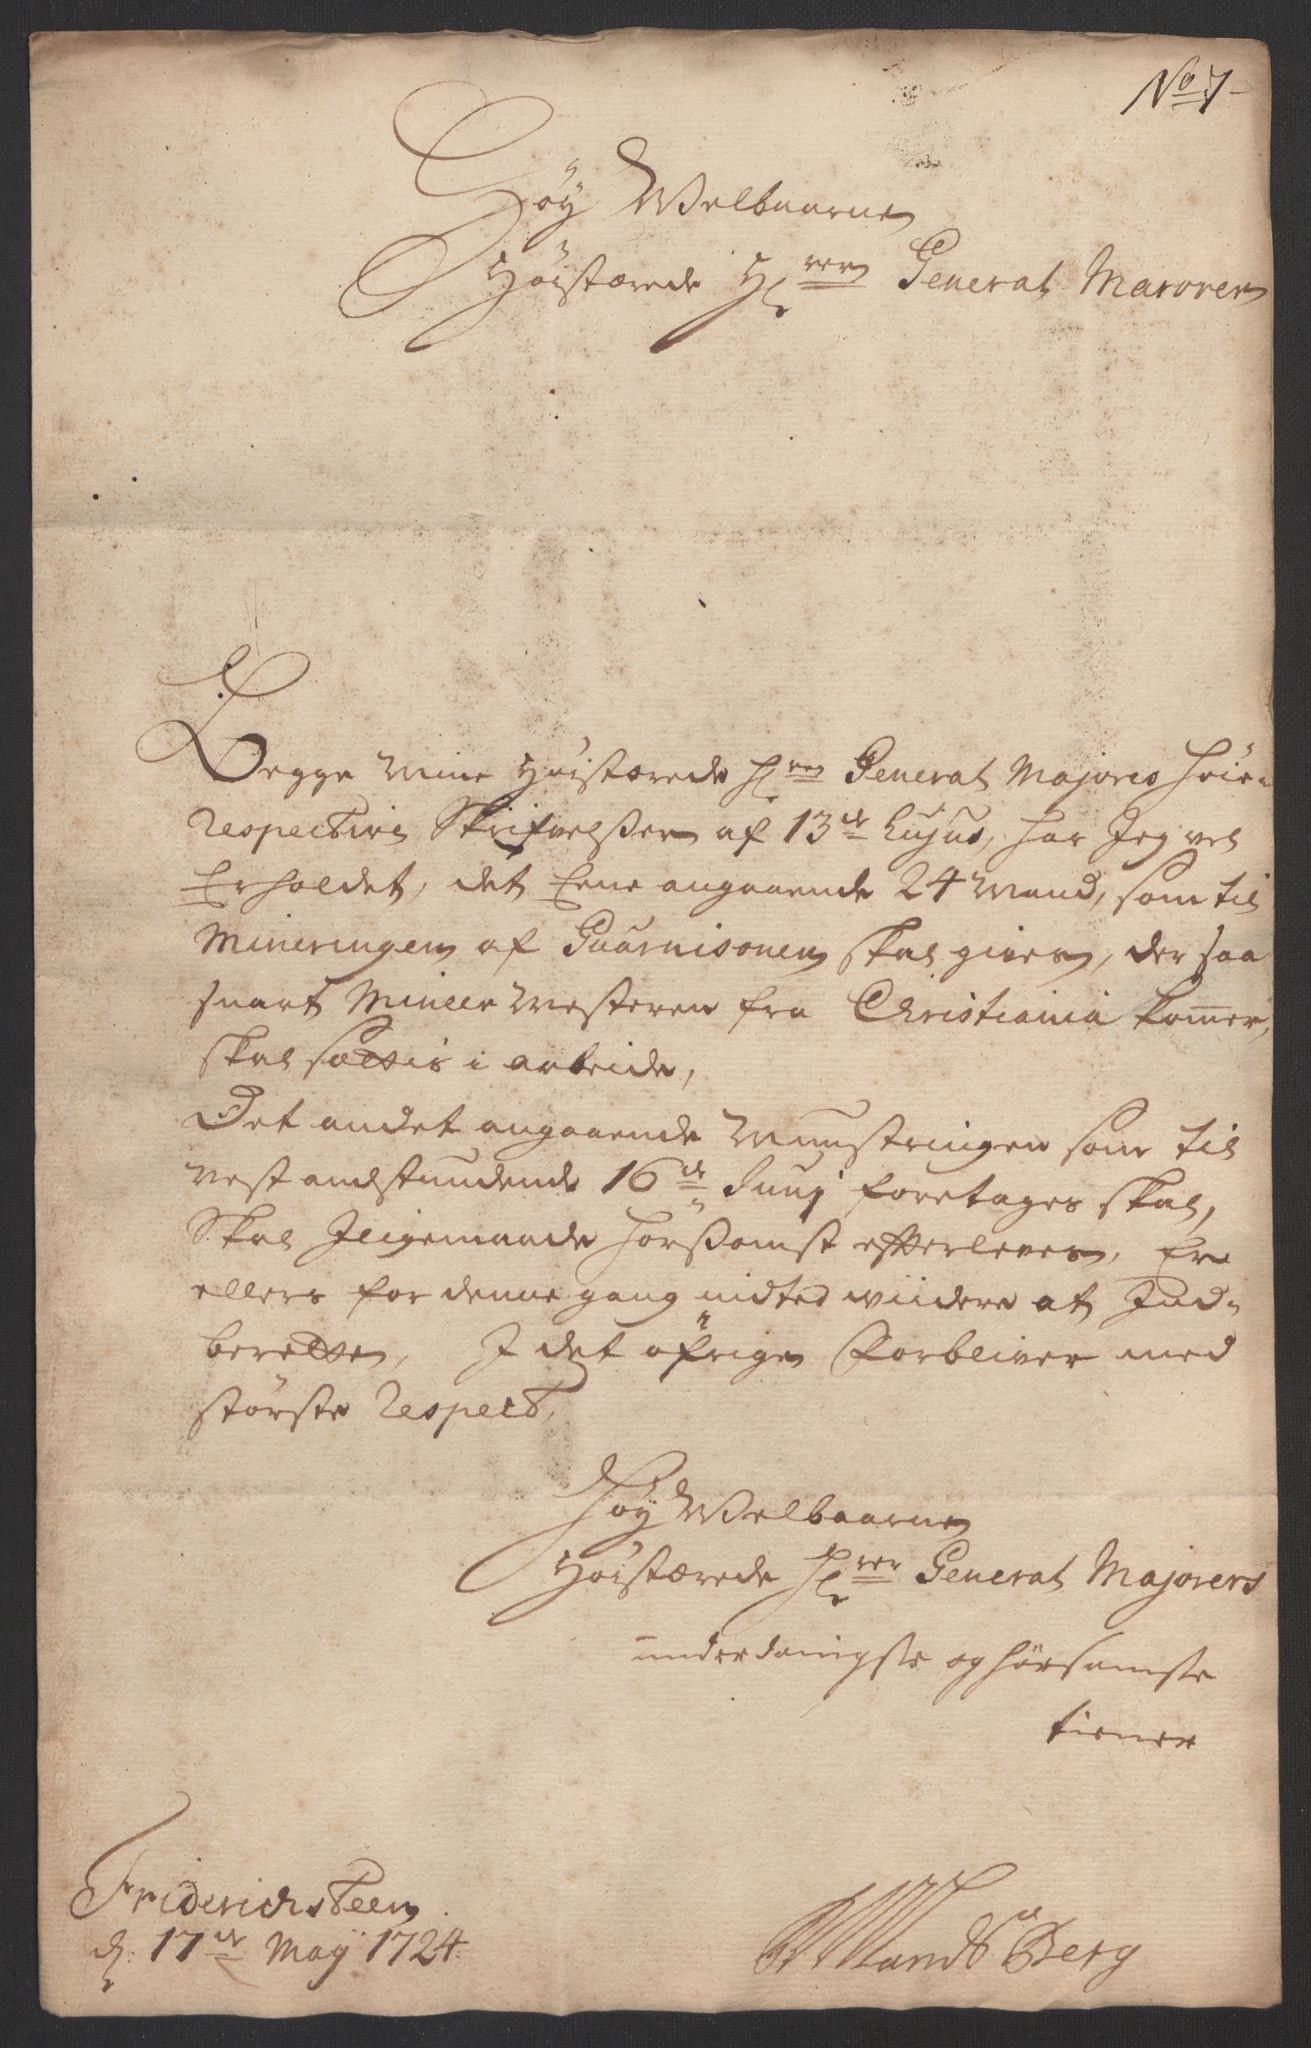 No 7
Høy Welbaarne
Høistærede Hr ren General Maroren
Begge Mine Høistærede Hr ren General Majores høie
respective Skrifvelsser af 13de hujus, har Jeg vel
Erholdet, det Eene angaaende 24 Mand, som til
Mineringen af Guarnisonen skal gives, der saa
snart Mineer Mesteren fra Christiania kom̅er,
skal sættis i arbeide,
Det andet angaaende Munstringen som til
nest andstundende 16de Junij foretages skal,
Skal Jligemaade hørsomst efterleves, Er
ellers for denne gang indted wiidere at Ind-
berette, J det øfrige Forbliver med
største Respect,
Høy Welbaarne
Høistærede Hr ren General Majorers
underdanigste og hørsamste
tiener
Friderichsteen
d: 17de May 1724.
Landsberg